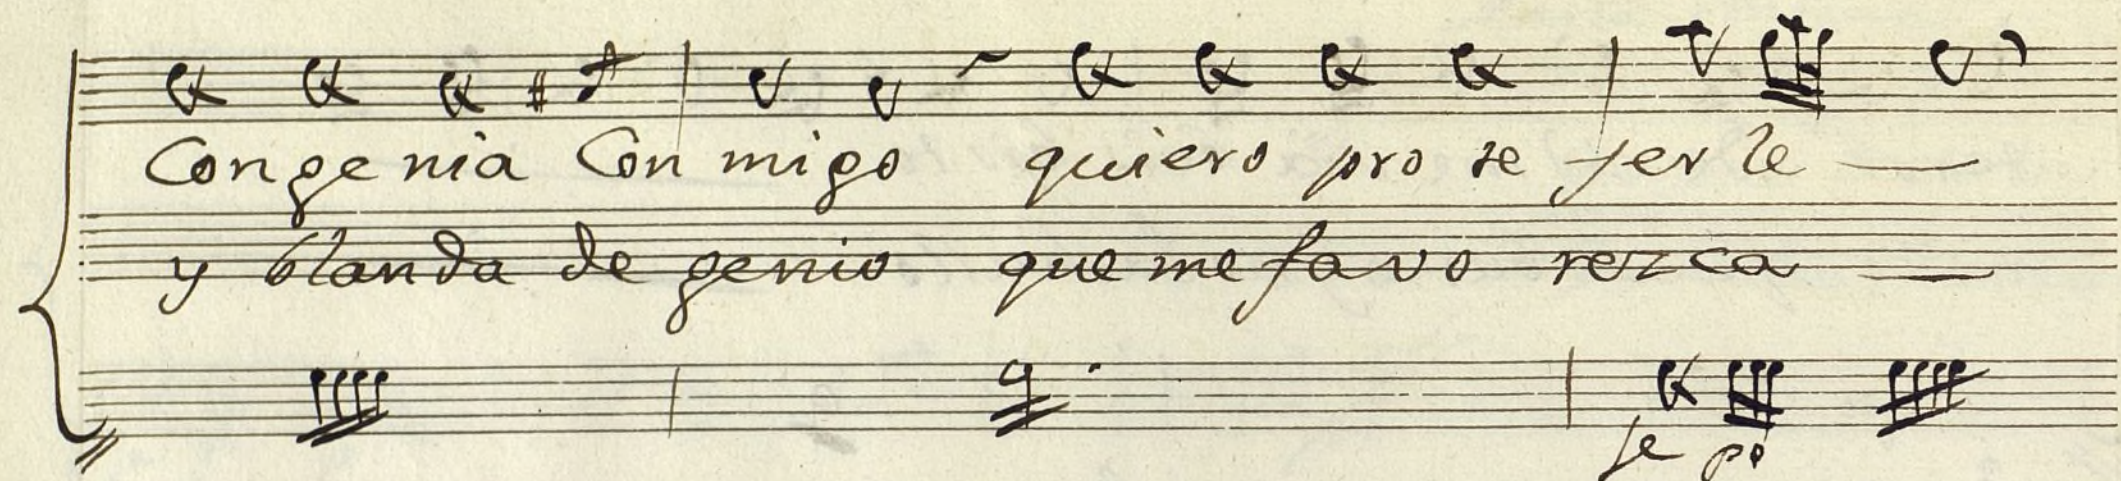 Congenia Con migo quiero pro te jer le
y blanda de genio que me favo rezca
fe po